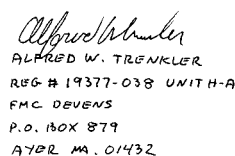 Alfred W. Trenkler
ALFRED W. TRENKLER
REG # 19377-038 UNIT H-A
FMC DEVENS
P.O. BOX 879
AYER MA. 01432